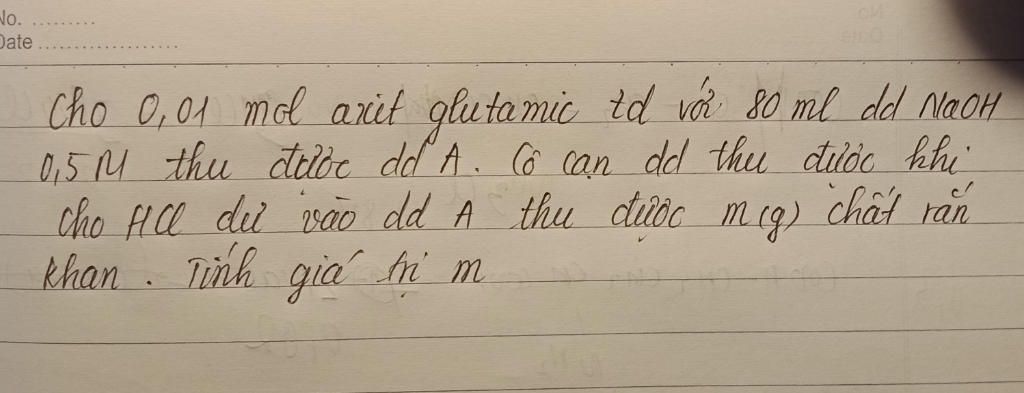 No. .........
Date ...................
Cho 0,01 mol axit glutamic td với 80 ml dd NaOH
0,5M thu được dd A. Cô cạn dd thu được khi
cho HCl dư vào dd A thu được m(g) chất rắn
khan. Tính giá trị m